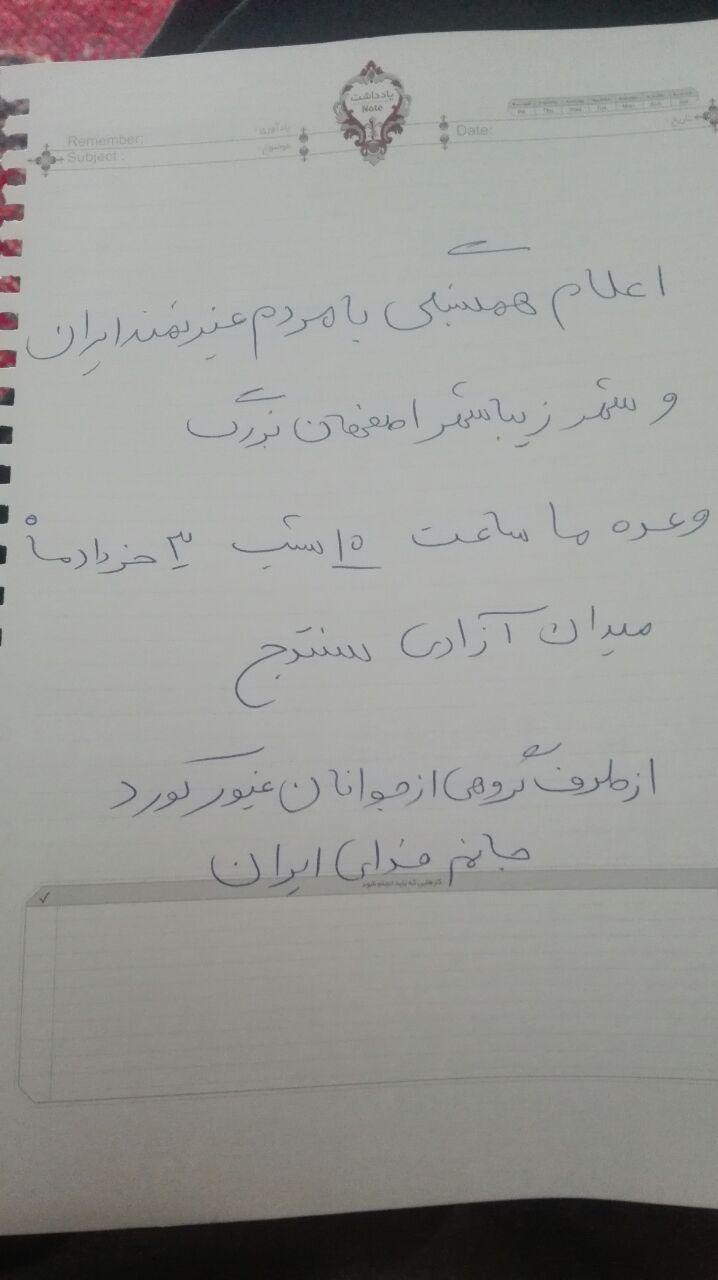 یادداشت
Note
Remember:
یادآوری:
Subject :
موضوع:
Date:
تاریخ:
اعلام همبستگی با مردم غیرتمند ایران
و شهر زیبا شهر اصفهان بزرگ
وعده ما ساعت ۱۰ شب ۳ خرداد ماه
میدان آزادی سنندج
از طرف گروهی از جوانان غیور کورد
جانم فدای ایران
کارهایی که باید انجام شود